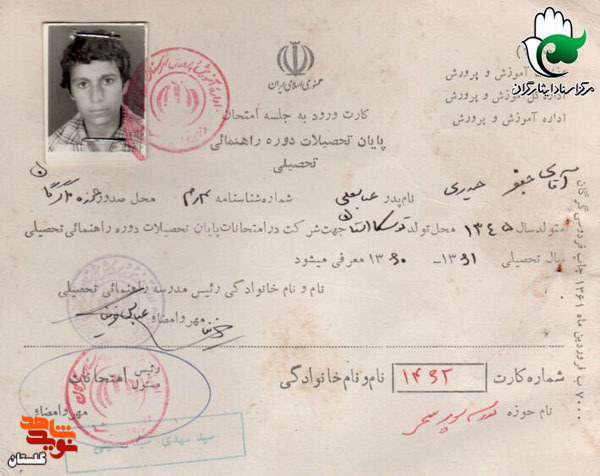 مرکز اسناد ایثارگران
جمهوری اسلامی ایران
آموزش و پرورش
اداره کل آموزش و پرورش
اداره آموزش و پرورش
کارت ورود به جلسه امتحان
پایان تحصیلات دوره راهنمائی
تحصیلی
آقای جعفر حیدری نام پدر عباسعلی شماره شناسنامه محل صدور حوزه گرگان
متولد سال ۱۳۴۵ محل تولد جهت شرکت در امتحانات پایان تحصیلات دوره راهنمائی تحصیلی
سال تحصیلی ۱۳۶۱ - ۱۳۶۰ معرفی میشود
نام و نام خانوادگی رئیس مدرسه راهنمائی تحصیلی
مهر و امضاء
شماره کارت ۱۴۶۲ نام و نام خانوادگی
رئیس
مسئول
امتحانات
نام حوزه
مهر و امضاء
سید مهدی
۷۰۰۰ ب فروردین ماه ۱۳۶۱ چاپ فردوسی گرگان
نوید شاهد
گلستان